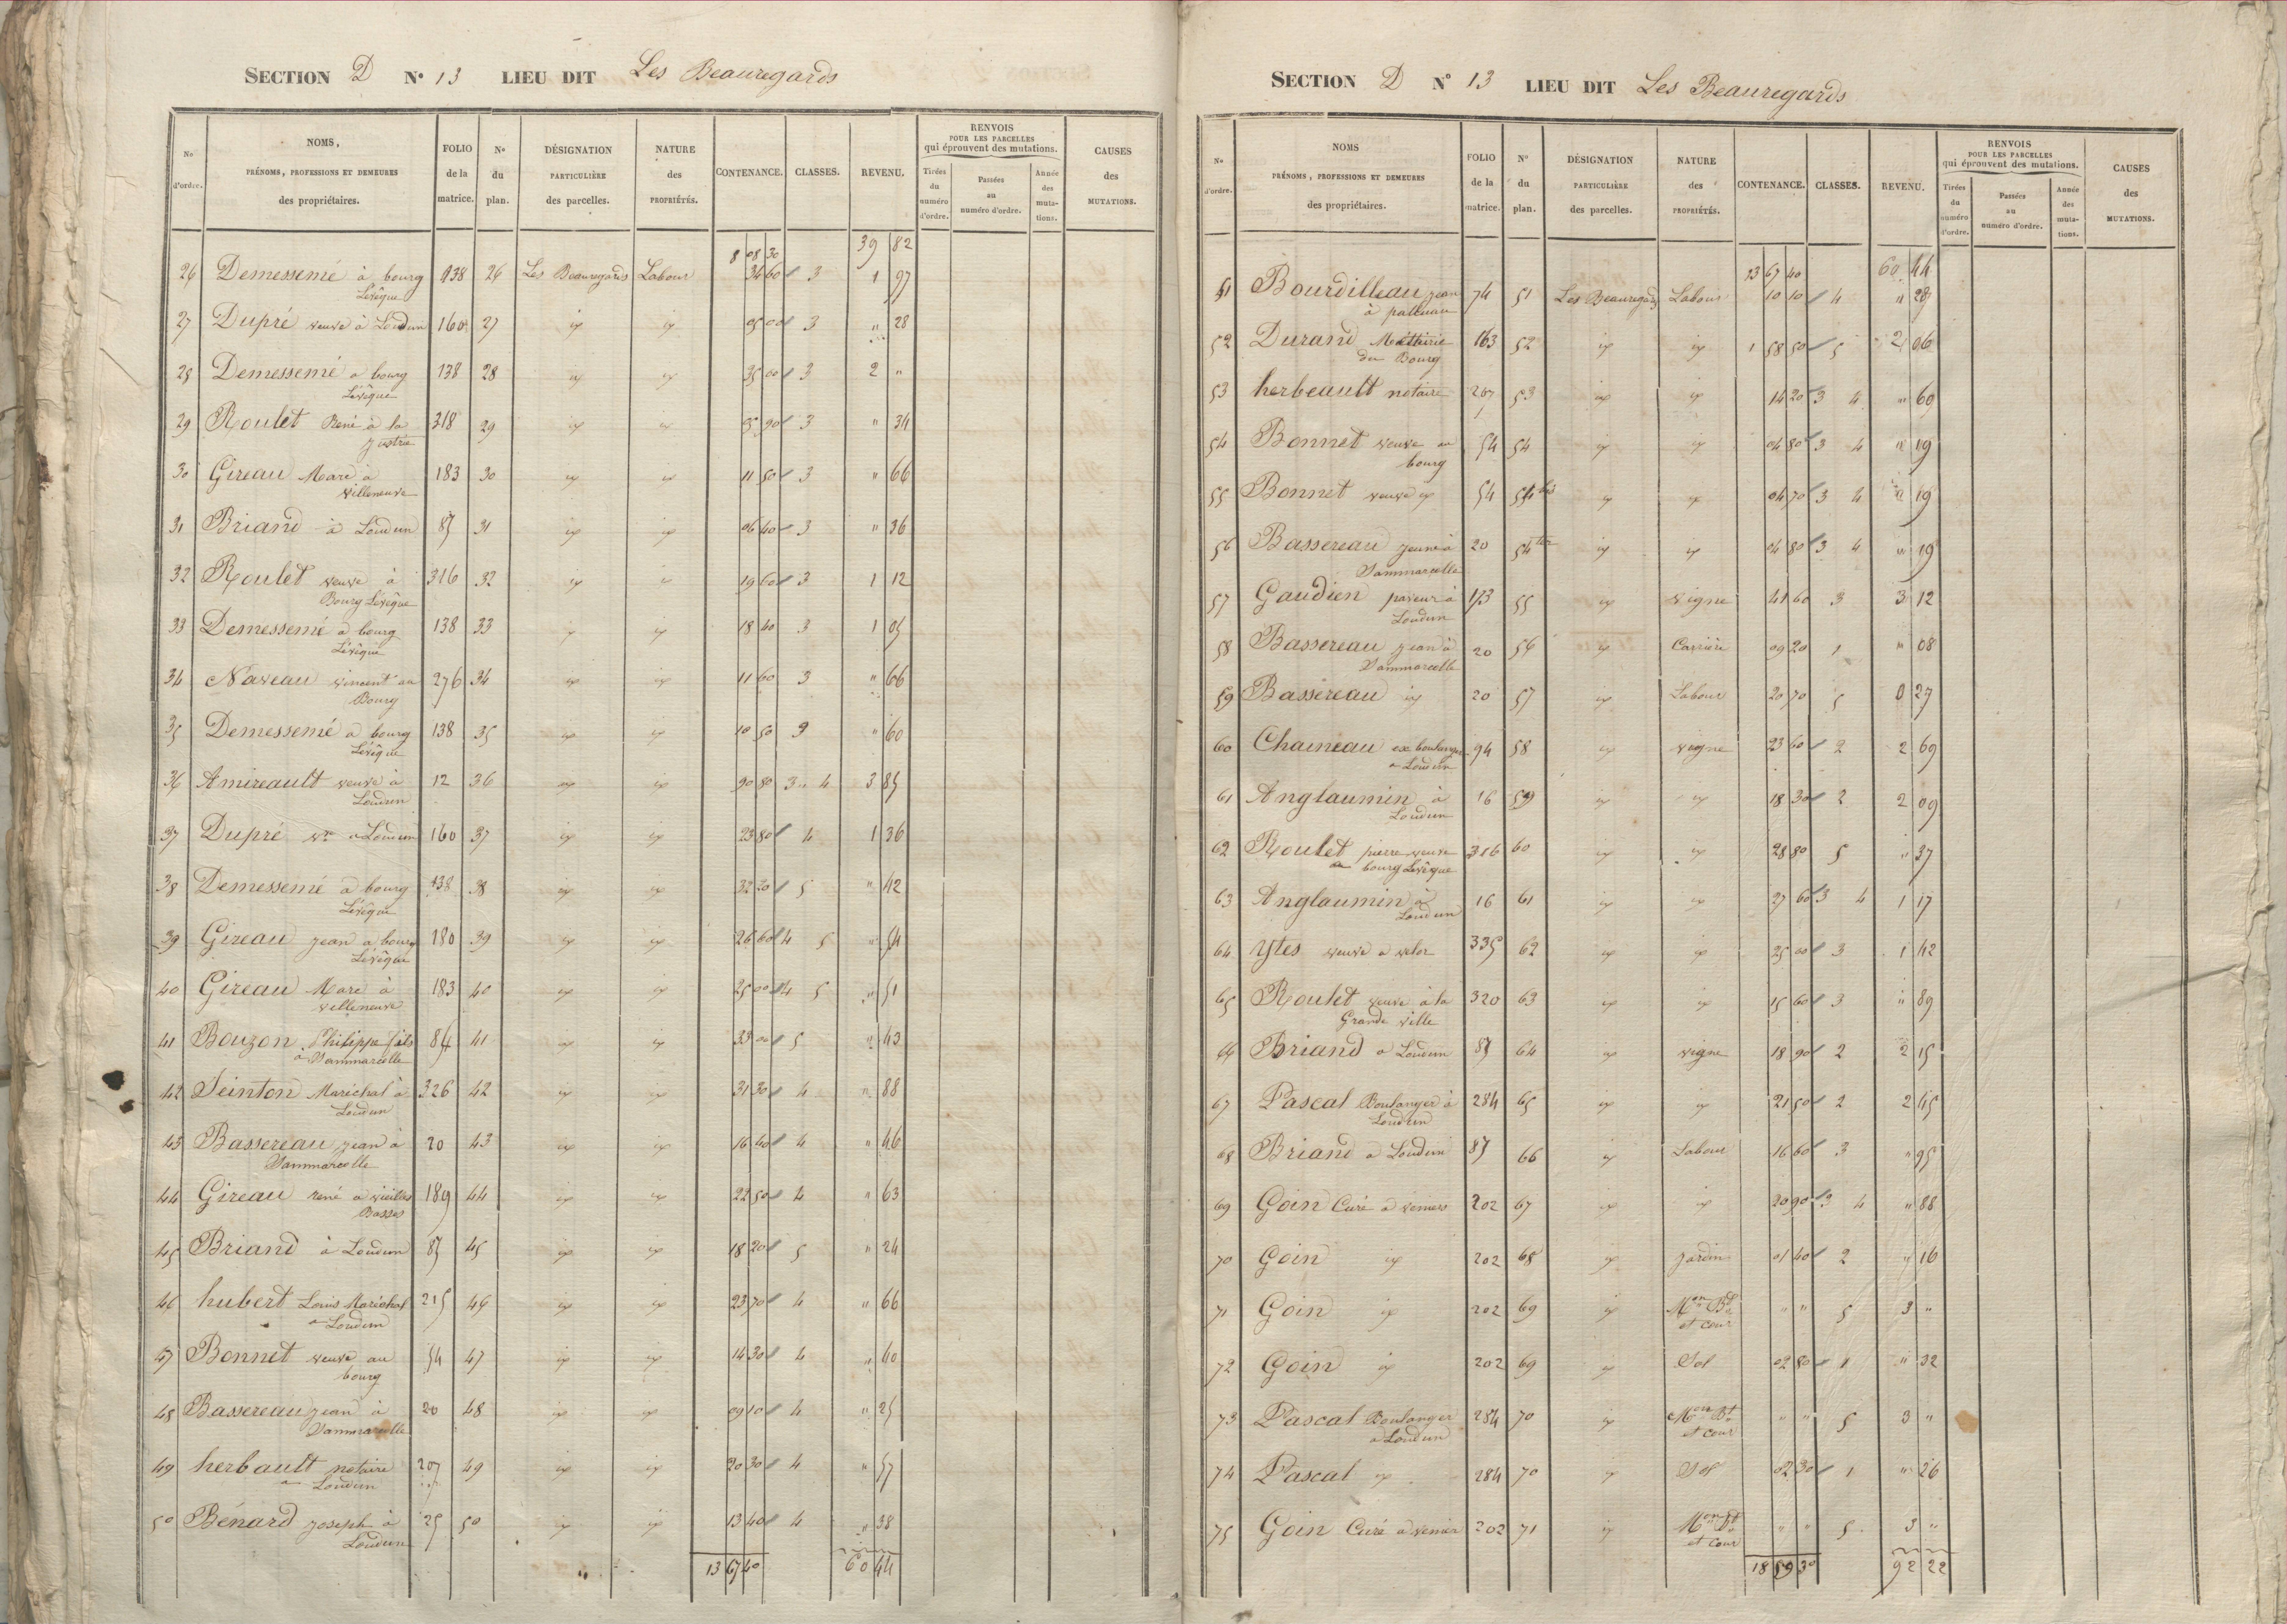 SECTION D N° 13 LIEU DIT Les Beauregards
No d'ordre. NOMS, PRÉNOMS, PROFESSIONS ET DEMEURES des propriétaires. FOLIO de la matrice. No du plan. DÉSIGNATION PARTICULIÈRE des parcelles. NATURE des PROPRIÉTÉS. CONTENANCE. CLASSES. REVENU. RENVOIS POUR LES PARCELLES qui éprouvent des mutations. Tirées du numéro d'ordre. Passées au numéro d'ordre. Année des mutations. CAUSES des MUTATIONS.
8 08 30 39 82
26 Demessemé à bourg 138 26 Les Beauregards Labour 34 60 3 1 97
Lévêque
27 Dupré veuve à Loudun 160 27 id id 05 00 3 " 28
28 Demessemé a bourg 138 28 id id 35 00 3 2 "
Lévêque
29 Roulet René à la 318 29 id id 05 90 3 " 34
Justrie
30 Gireau Marc à 183 30 id id 11 50 3 " 66
villeneuve
31 Briand à Loudun 85 31 id id 06 40 3 " 36
32 Roulet veuve à 316 32 id id 19 60 3 1 12
Bourg Lévêque
33 Demessemé a bourg 138 33 id id 18 40 3 1 05
Lévêque
34 Naveau vincent au 276 34 id id 11 60 3 " 66
Bourg
35 Demessemé a bourg 138 35 id id 10 50 3 " 60
Lévêque
36 Amireault veuve à 12 36 id id 90 80 3 " 4 3 85
Loudun
37 Dupré Ve a Loudun 160 37 id id 23 80 4 1 36
38 Demessemé a bourg 138 38 id id 32 20 5 " 42
Lévêque
39 Gireau jean a bourg 180 39 id id 26 60 4 5 " 54
Lévêque
40 Gireau Marc à 183 40 id id 25 00 4 5 " 51
villeneuve
41 Bouzon Philippe fils 84 41 id id 33 00 5 " 43
a Dammarcelle
42 Teinton Maréchal à 326 42 id id 31 30 4 " 88
Loudun
43 Bassereau jean à 20 43 id id 16 40 4 " 46
Dammarcelle
44 Gireau rené a vieilles 189 44 id id 22 50 4 " 63
Basses
45 Briand à Loudun 85 45 id id 18 20 5 " 24
46 hubert Louis Maréchal 215 46 id id 23 70 4 " 66
a Loudun
47 Bonnet veuve au 54 47 id id 14 30 4 " 40
bourg
48 Bassereau jean à 20 48 id id 09 10 4 " 25
Dammarcelle
49 herbault notaire 207 49 id id 20 30 4 " 57
a Loudun
50 Bénard joseph à 25 50 id id 13 40 4 " 38
Loudun
13 67 40 60 44
SECTION D N° 13 LIEU DIT Les Beauregards
No d'ordre. NOMS PRÉNOMS, PROFESSIONS ET DEMEURES des propriétaires. FOLIO de la matrice. N° du plan. DÉSIGNATION PARTICULIÈRE des parcelles. NATURE des PROPRIÉTÉS. CONTENANCE. CLASSES. REVENU. RENVOIS POUR LES PARCELLES qui éprouvent des mutations. Tirées du numéro d'ordre. Passées au numéro d'ordre. Année des mutations. CAUSES des MUTATIONS.
13 67 40 60 44
51 Bourdilleau jean 74 51 Les Beauregards Labour 10 10 4 " 28
à palluau
52 Durand Méttairie 163 52 id id 1 58 50 5 2 06
du Bourg
53 herbeault notaire 207 53 id id 14 20 3 4 " 60
54 Bonnet veuve au 54 54 id id 04 80 3 4 " 19
bourg
55 Bonnet veuve id 54 54 bis id id 04 70 3 4 " 19
56 Bassereau jeune à 20 54 ter id id 04 80 3 4 " 19
Dammarcelle
57 Gaudien paveur à 173 55 id vigne 41 60 3 3 12
Loudun
58 Bassereau jean à 20 56 id Carrière 09 20 1 " 08
Dammarcelle
59 Bassereau id 20 57 id Labour 20 70 5 0 27
60 Chaineau ex boulanger 94 58 id vigne 23 60 2 2 69
a Loudun
61 Anglaumin à 16 59 id id 18 30 2 2 09
Loudun
62 Roulet pierre veuve 316 60 id id 28 80 5 " 37
a bourg Lévêque
63 Anglaumin à 16 61 id id 27 60 3 4 1 17
Loudun
64 Ytes veuve a velor 335 62 id id 25 00 3 1 42
65 Roulet veuve à la 320 63 id id 15 60 3 " 89
Grande ville
66 Briand a Loudun 85 64 id vigne 18 90 2 2 15
67 Pascal Boulanger à 284 65 id id 21 50 2 2 45
Loudun
68 Briand a Loudun 85 66 id Labour 16 60 3 " 95
69 Goin Curé a 202 67 id id 20 90 3 4 " 88
70 Goin id 202 68 id jardin 01 40 2 " 16
71 Goin id 202 69 id Mon Bt " " 5 3 "
et cour
72 Goin id 202 69 id Sol 02 80 1 " 32
73 Pascal Boulanger 284 70 id Mon Bt " " 5 3 "
a Loudun et cour
74 Pascal id 284 70 id Sol 02 30 1 " 26
75 Goin Curé a 202 71 id Mon Bt " " 5 3 "
et cour
18 59 30 92 22